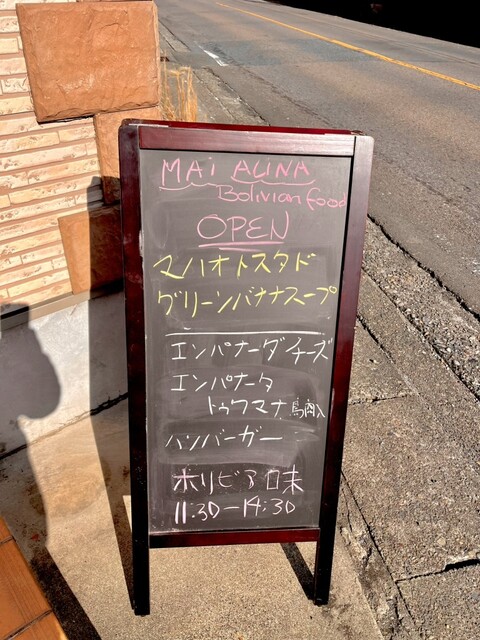 MAi ALiNA
Bolivian food
OPEN
マハオトスタド
グリーンバナナスープ
エンパナーダチーズ
エンパナータ
トゥクマナ鳥肉入
ハンバーガー
ホリビア口未
11:30-14:30